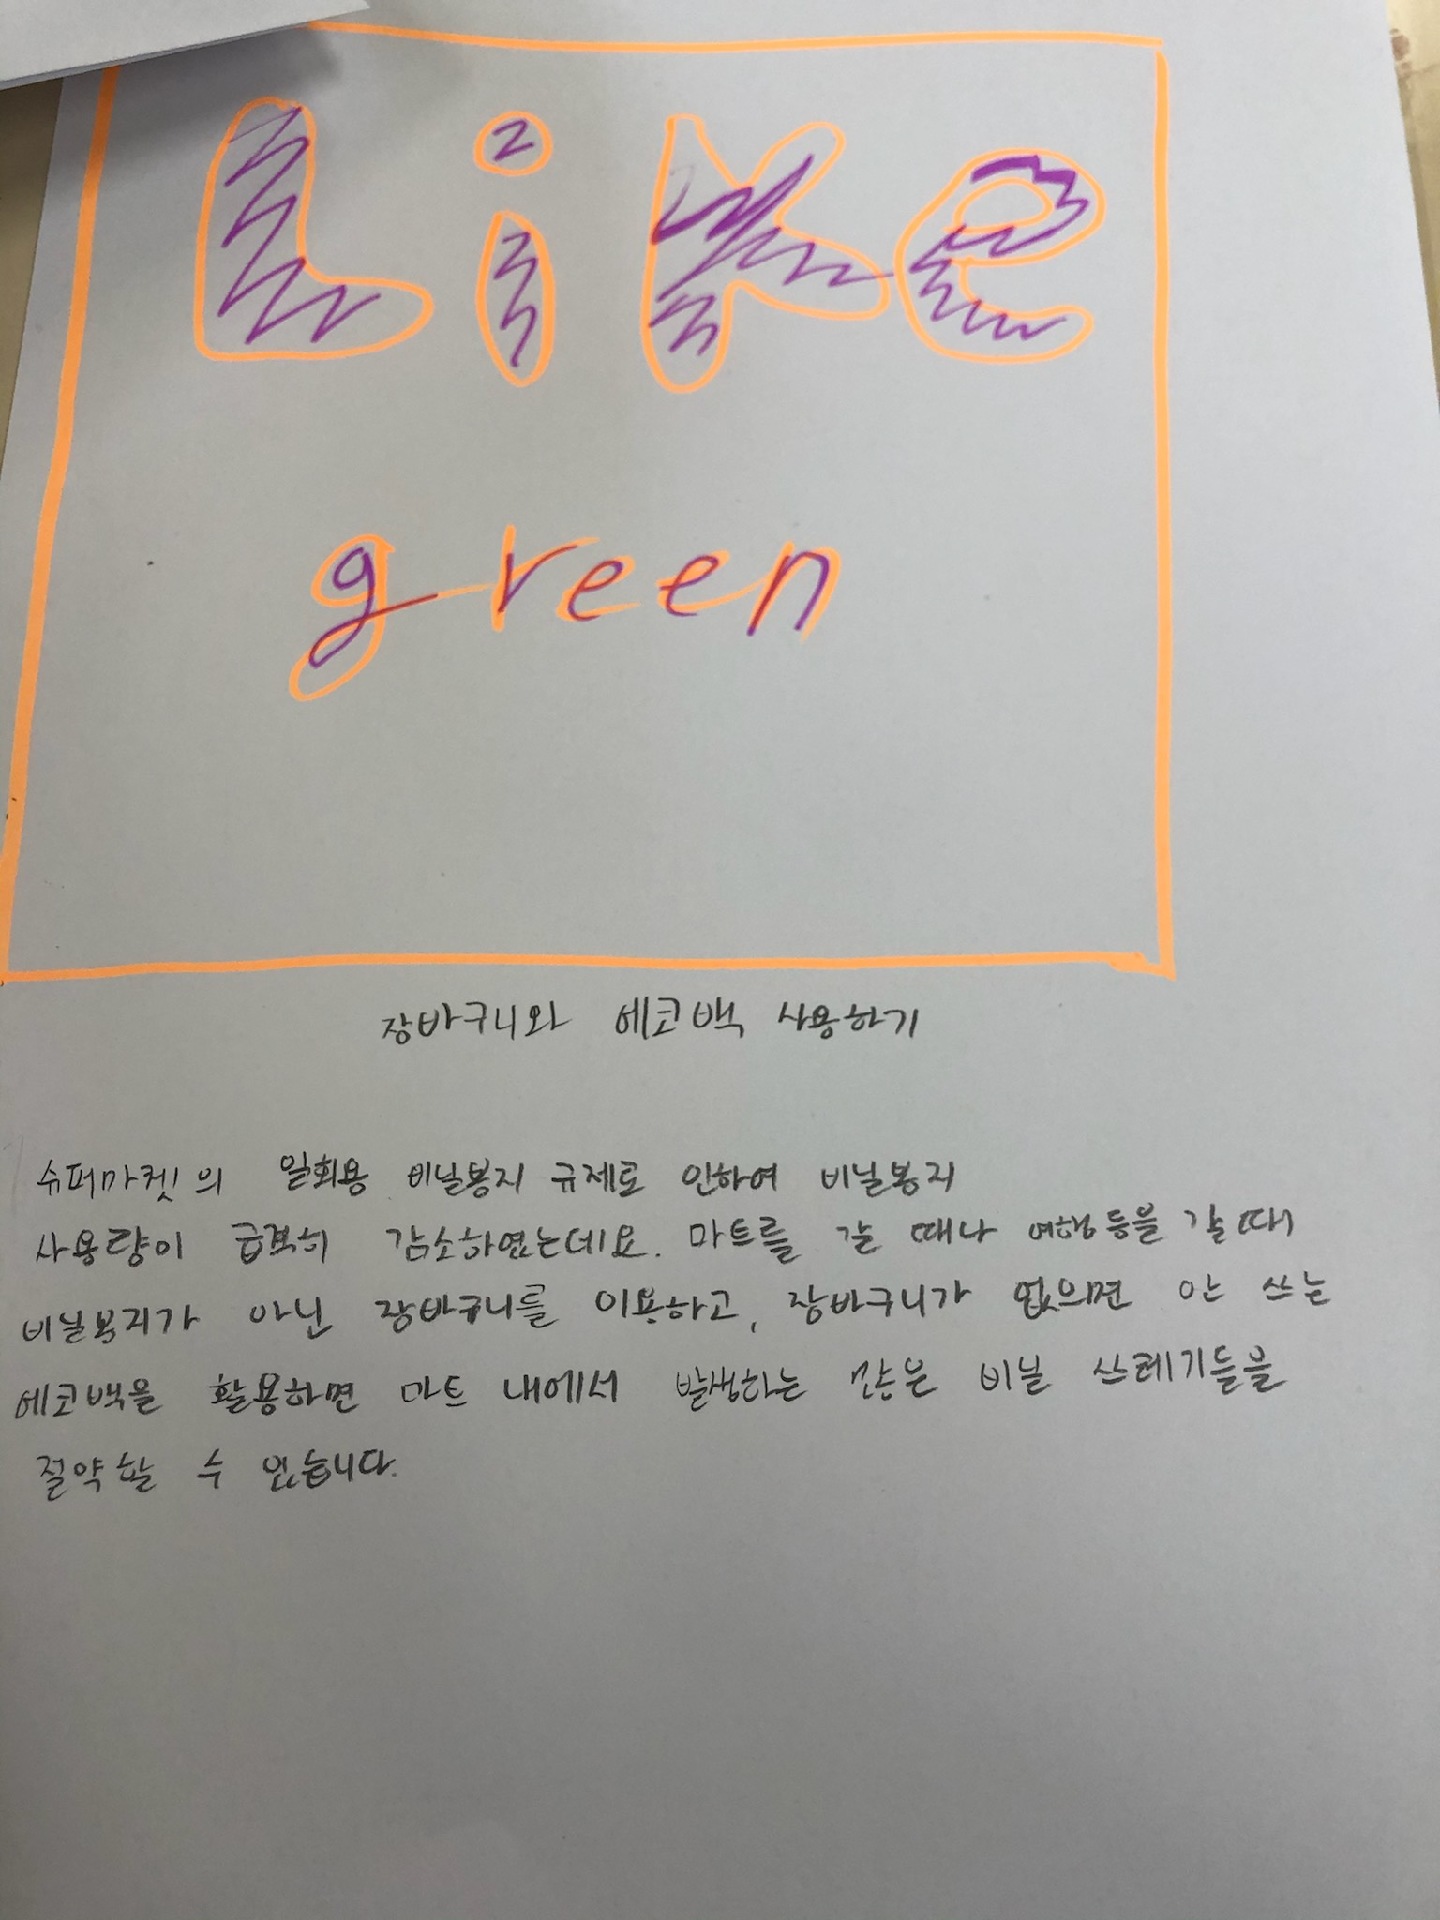 Like
green
장바구니와 에코백 사용하기
슈퍼마켓의 일회용 비닐봉지 규제로 인하여 비닐봉지
사용량이 급격히 감소하였는데요. 마트를 갈 때나 여행 등을 갈 때
비닐봉지가 아닌 장바구니를 이용하고, 장바구니가 없으면 안 쓰는
에코백을 활용하면 마트 내에서 발생하는 많은 비닐 쓰레기들을
절약할 수 있습니다.